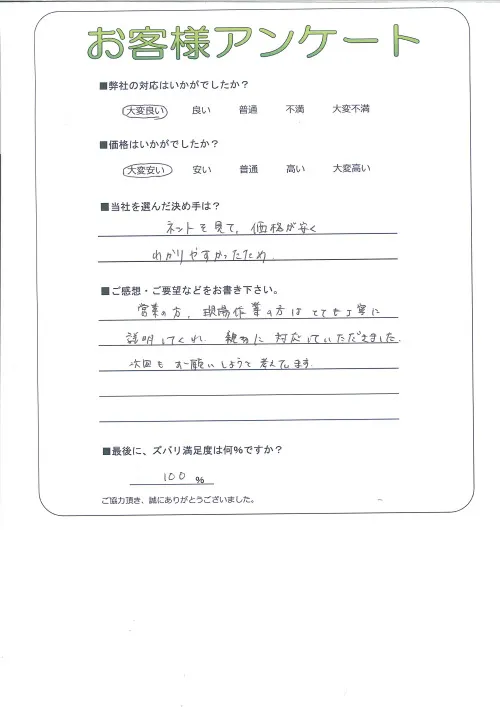 お客様アンケート
■弊社の対応はいかがでしたか？
大変良い 良い 普通 不満 大変不満
■価格はいかがでしたか？
大変安い 安い 普通 高い 大変高い
■当社を選んだ決め手は？
ネットを見て、価格が安く
わかりやすかったため
■ご感想・ご要望などをお書き下さい。
営業の方、現場作業の方はとても丁寧に
説明してくれ、親切に対応していただきました。
次回もお願いしようと考えてます。
■最後に、ズバリ満足度は何%ですか？
100 %
ご協力頂き、誠にありがとうございました。